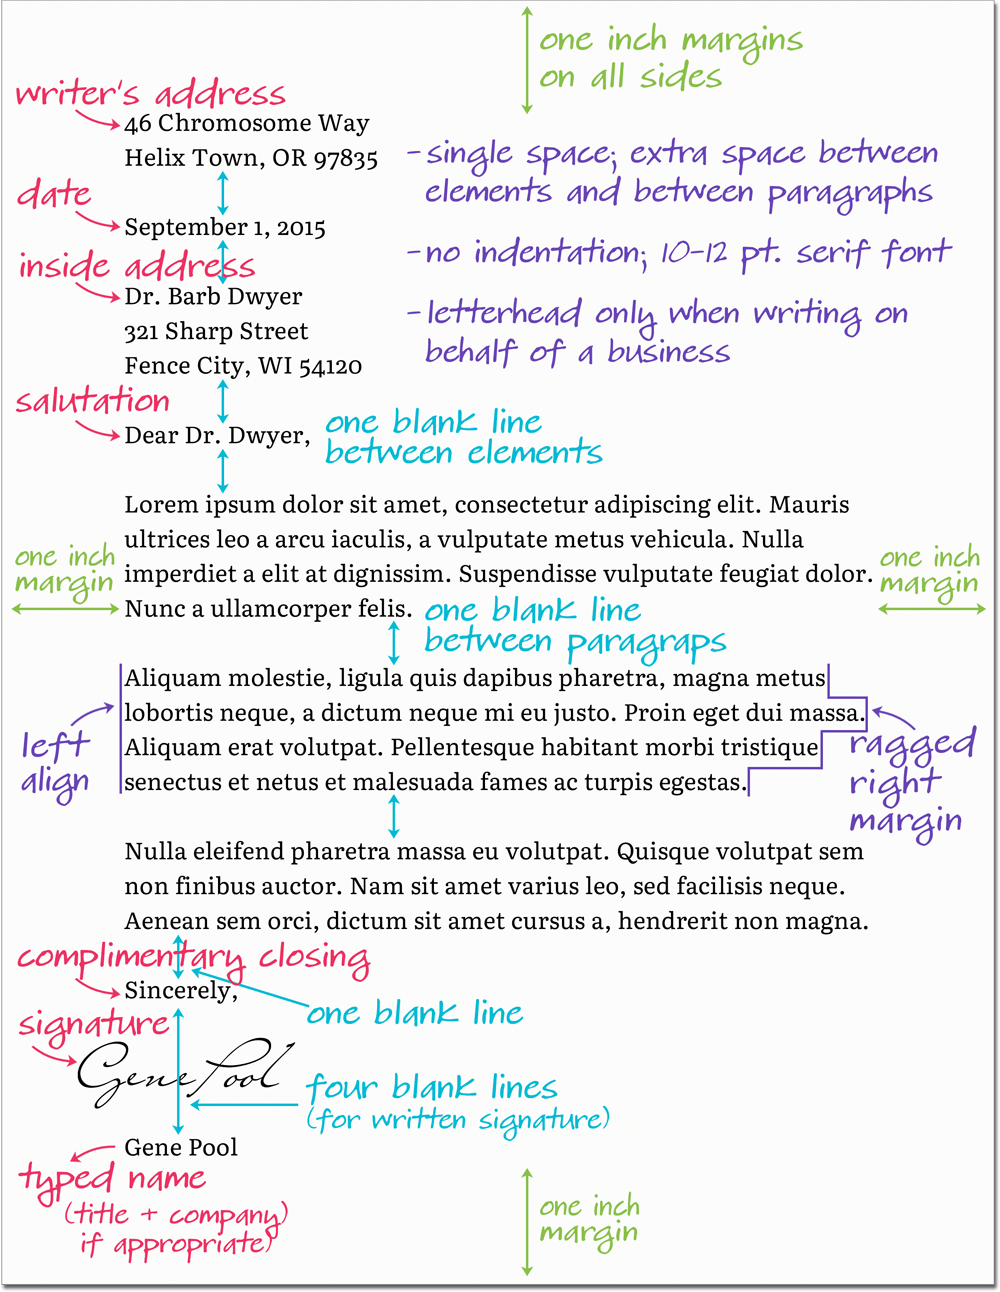 one inch margins
on all sides
writer's address
46 Chromosome Way
Helix Town, OR 97835
- single space; extra space between
elements and between paragraphs
date
September 1, 2015
- no indentation; 10-12 pt. serif font
inside address
Dr. Barb Dwyer
321 Sharp Street
Fence City, WI 54120
- letterhead only when writing on
behalf of a business
salutation
Dear Dr. Dwyer,
one blank line
between elements
Lorem ipsum dolor sit amet, consectetur adipiscing elit. Mauris
ultrices leo a arcu iaculis, a vulputate metus vehicula. Nulla
imperdiet a elit at dignissim. Suspendisse vulputate feugiat dolor.
Nunc a ullamcorper felis.
one inch
margin
one inch
margin
one blank line
between paragraps
Aliquam molestie, ligula quis dapibus pharetra, magna metus
lobortis neque, a dictum neque mi eu justo. Proin eget dui massa.
Aliquam erat volutpat. Pellentesque habitant morbi tristique
senectus et netus et malesuada fames ac turpis egestas.
left
align
ragged
right
margin
Nulla eleifend pharetra massa eu volutpat. Quisque volutpat sem
non finibus auctor. Nam sit amet varius leo, sed facilisis neque.
Aenean sem orci, dictum sit amet cursus a, hendrerit non magna.
complimentary closing
Sincerely,
one blank line
signature
Gene Pool
four blank lines
(for written signature)
Gene Pool
typed name
(title + company)
if appropriate)
one inch
margin